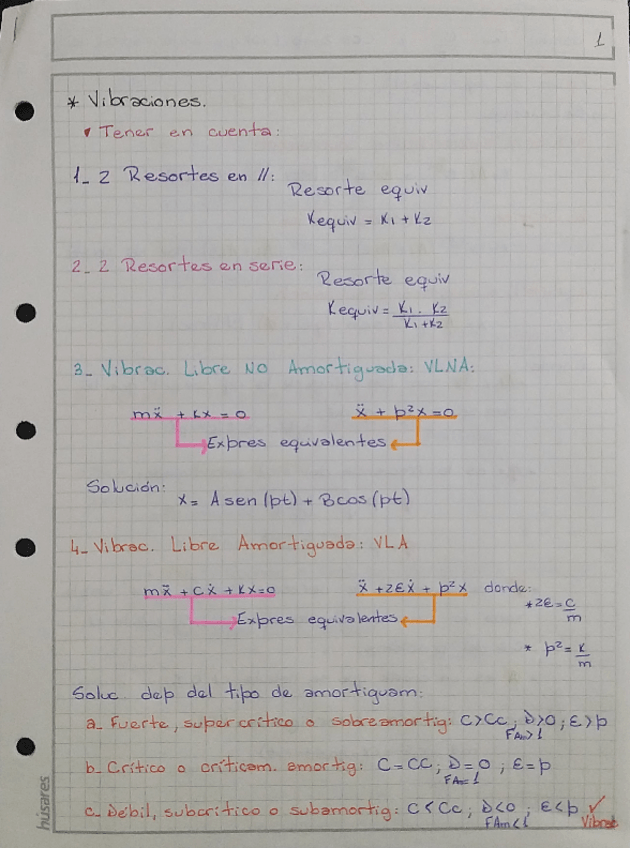 1
* Vibraciones.
Tener en cuenta:
1_ 2 Resortes en //:
Resorte equiv
Kequiv = K₁ + K₂
2_ 2 Resortes en serie:
Resorte equiv
Kequiv = K₁ . K₂
K₁+K₂
3_ Vibrac. Libre NO Amortiguada: VLNA:
mẍ + kx = 0 ẍ + p²x = 0
Expres equivalentes
Solución:
x = A sen (pt) + B cos (pt)
4_ Vibrac. Libre Amortiguada: VLA
mẍ + Cẋ + Kx=0 ẍ + 2Ɛẋ + p²x donde:
*2Ɛ = C
m
* p² = K
m
Soluc dep del tipo de amortiguam:
a_ Fuerte, super crítico o sobreamortig: C>Cc; D>0; Ɛ>p
FAm>1
b_ Crítico o críticam. amortig: C=CC; D=0; Ɛ=p
FAm=1
c_ Débil, subcrítico o subamortig: C<Cc; D<0; Ɛ<p ✓
FAm<1 Vibrac
húsares